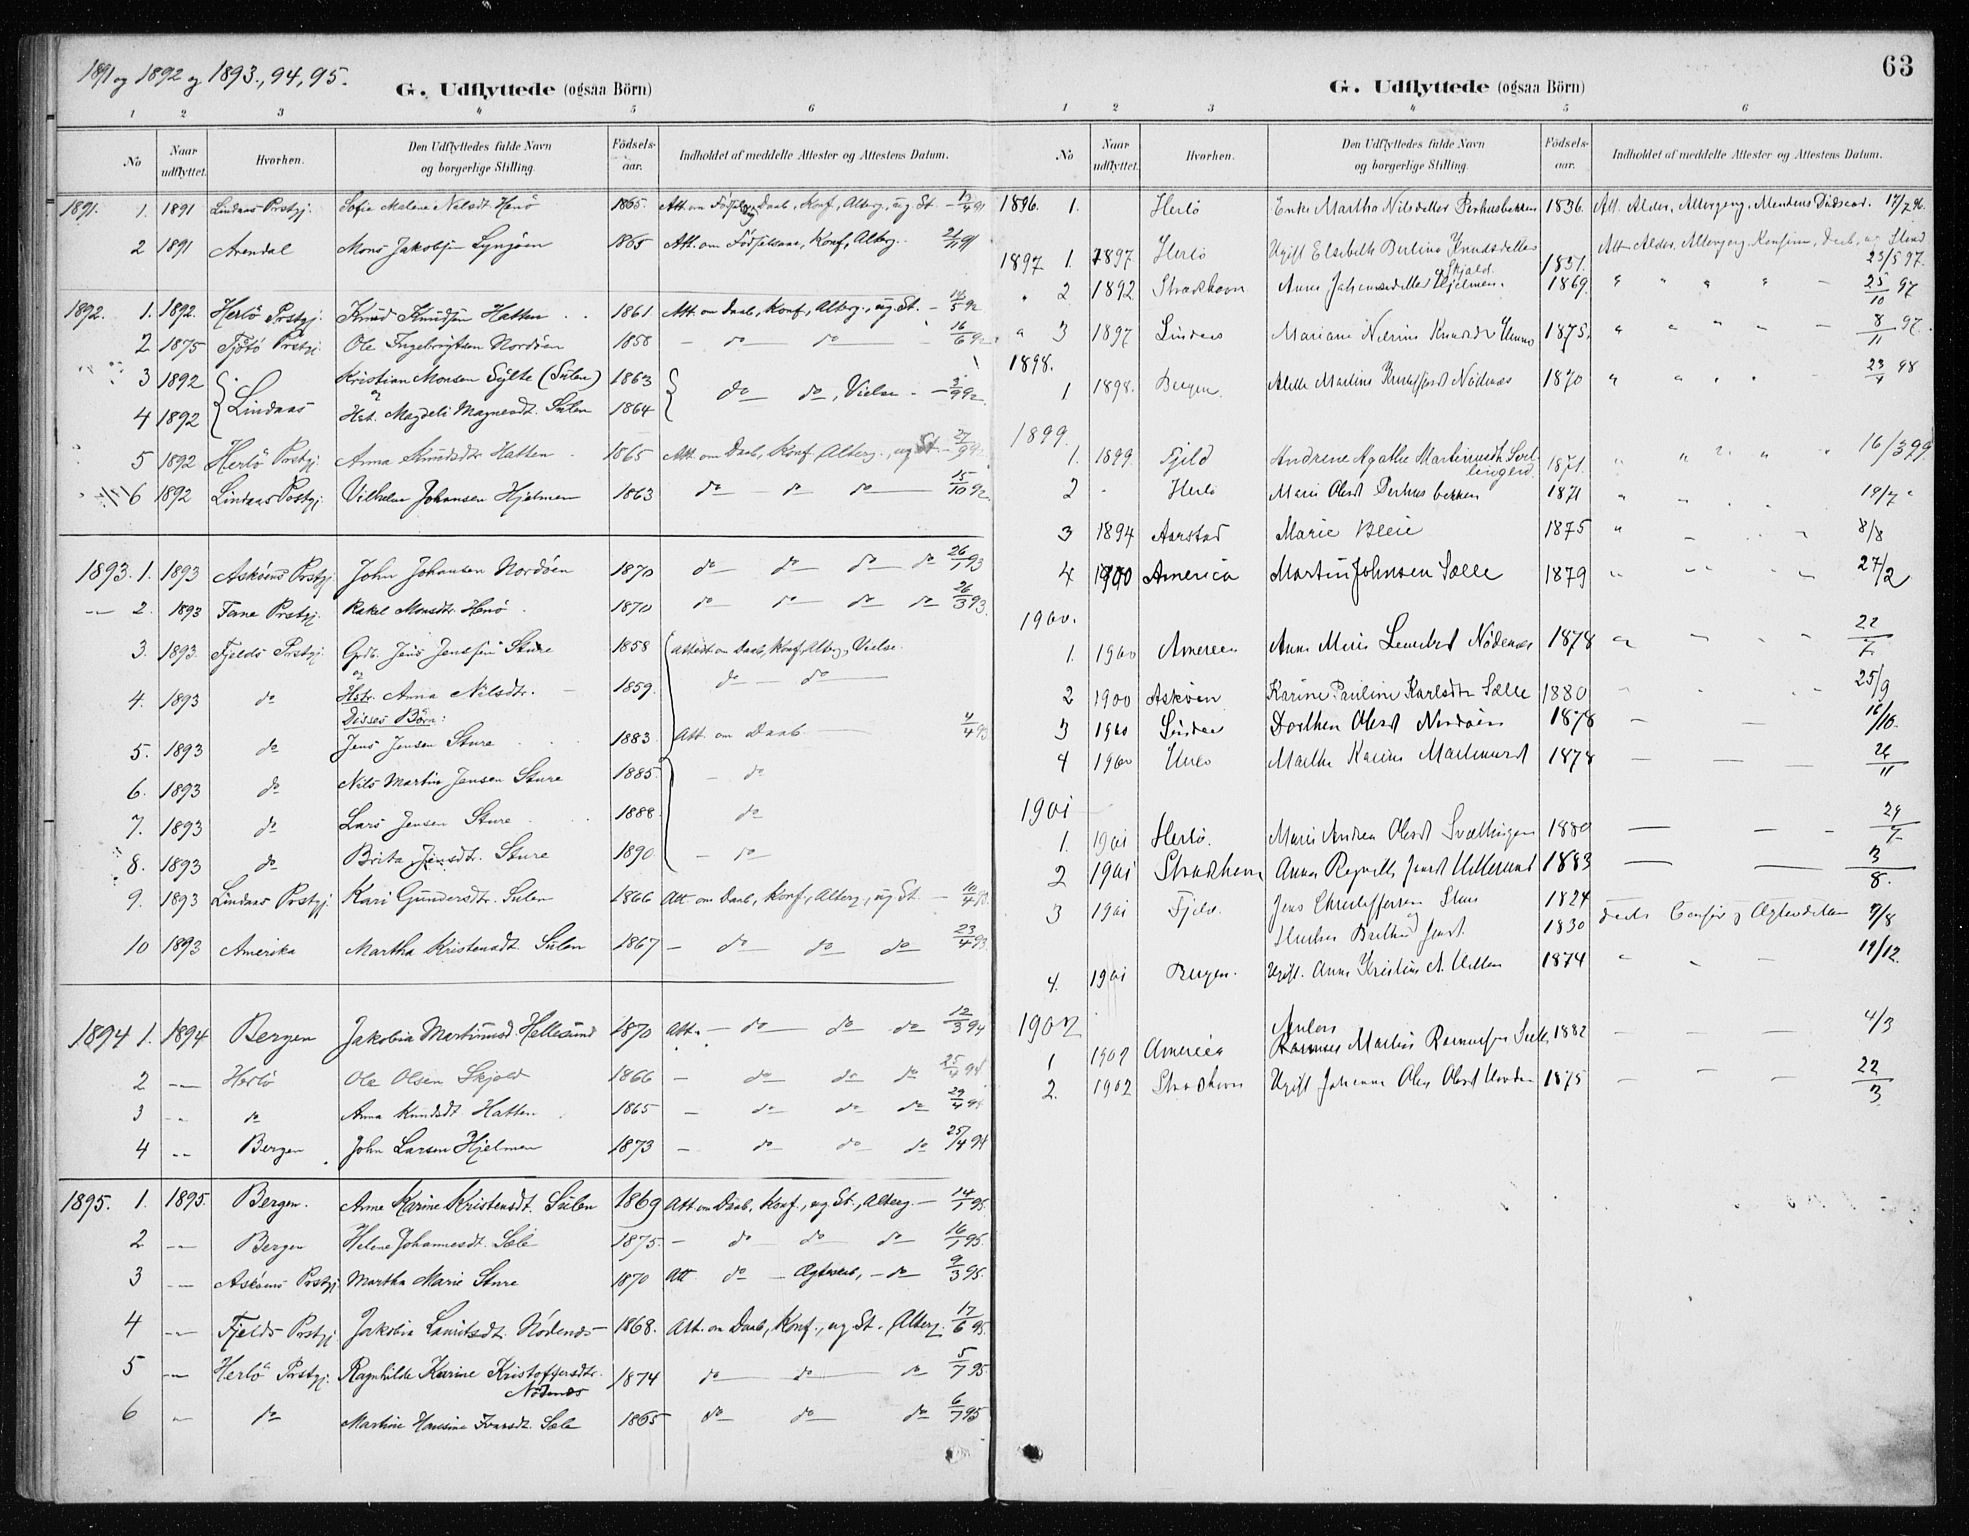 1891 og 1892 og 1893., 94, 95.
G. Udflyttede (ogsaa Börn)
1 2 3 4 5 6
No Naar udflyttet. Hvorhen. Den Udflyttedes fulde Navn og borgerlige Stilling. Födsels-aar. Indholdet af meddelte Attester og Attestens Datum.
1891. 1. 1891 Lindaas Prstgj. Sofie Malene Nilsdt. Henö 1865. Att. om Födsel, Daab, Konf., Alterg., ug. St.
2 1891 Arendal Mons Jakobsen 1865 Att. om Födselsaar, Konf., Alterg.
1892. 1. 1892. Herlö Prstgj. Knud Knudsen Hatten 1861 Att. om Daab, Konf., Alterg., ug. St. – 5 92.
2 1875 Prstgj. Ole Ingebrigtsen Nordöen 1858 – do – do – 16/6 92.
3 1892 Lindaas Kristian Monsen Sylte (Sulen) 1863 do do, Vielse. – 9 92.
og
4 1892 Hst. Magdeli Magnendt. Sulen 1864
5 1892 Herlö Prstgj. Anna Knudsdtr. Hatten 1865 Att. om Daab, Konf. Alterg., ug St. 27/9 92
6 1892 Lindaas Prstgj. Vilhelm Johansen Hjelmen 1863 do – do – do 15/10 92
1893. 1. 1893 Asköens Prstgj. John Johansen Nordöen 1870 do – do – do – do 26/1 93
2. 1893 Fane Prstgj. Rakel Monsdtr. Henö 1870 do – do – do – do 26/3 93.
3. 1893. Fjelds Prstgj. Grdb. Jens Jensen Sture 1858 Attest om Daab, Konf., Alterg., Vielse.
og
4. 1893 do Hstr. Anna Nilsdtr. 1859. do – do
Disses Börn:
5. 1893 do Jens Jensen Sture 1883. Att. om Daab 4/4 93
6. 1893 do Nils Martin Jensen Sture 1885. – do
7. 1893 do Lars Jensen Sture 1888. do
8. 1893 do Brita Jensdtr. Sture 1890 – do
9. 1893 Lindaas Prstgj. Kari Gundersdtr. Sulen 1866 Att. om Daab, Konf., Alterg., ug St. –
10 1893 Amerika Martha Kristensdt. Sulen 1867 – do do do 23/4 93
1894 1. 1894 Bergen Jakobia Mortinusd. Hellesund 1870 Att. – do do do 12/3 94
2 – Herlö Ole Olsen Skjold 1866 – do do do 25/4 94
3 – do Anna Knudsdt Hatten 1865 – do do do 29/4 94
4 – Bergen John Larsen Hjelmen 1873 – do do do 25/4 94
1895. 1. 1895. Bergen. Anne Karine Kristensdt. Sulen 1869 Att. om Daab, Konf., ug St., Alterg. – 14/1 95.
2 – Bergen Helene Johannesdt. Sæle 1875. – do do do 16/1 95.
3 – Asköens Prstgj. Martha Marie Sture 1870 Att. do – Ægteskab, – do 9/3 95.
4 – Fjelds Prstgj. Jakobia Lauritsdt. Nödenes 1868. Att. om Daab, Konf., ug St. Alterg. 17/6 95.
5 – Herlö Prstgj. Ragnhilde Karine Kristoffersdtr. Nödenes 1874 do do do 5/7 95
6 – do Martine Hansine Ivarsdt. Sæle 1865 do do do 6/7 95
63
G. Udflyttede (ogsaa Börn)
1 2 3 4 5 6
No Naar udflyttet. Hvorhen. Den Udflyttedes fulde Navn og borgerlige Stilling. Födsels-aar. Indholdet af meddelte Attester og Attestens Datum.
1896. 1. Herlö Enke Martha Nilsdatter 1836. Att. Alder, Altergang, Mandens Dödsaar. 17/7 96.
1897 1. 1897. Herlö Ugift Elsebeth Berlina Knudsdatter Skjold. 1851. Att. Alder, Altergang. Konfirm., Daab, ug Stand 23/5 97.
" 2 1892 Stradhavn Anna Johannesdatter Hjelmen. 1869. " " " " – 25/10 97
" 3 1897 Lindaas Mariane 1875. " " " " – 8/11 97.
1898.
1 1898. Bergen. Martine Nödenæs 1870 " " " – 98
1899.
1. 1899. Fjeld Andrene Agathe Martinusdt. 1871. " " " " 16/3 99
2 - Herlö Marie Olsdt 1871 19/7 "
3 1894 Aarstad Marie Bleie 1875 " 8/8
4 1900 America Martin Johnsen Sælle 1879 " 27/2
1900.
1. 1900 America Anne Marie Nödenæs 1878 " 22/7
2 1900 Asköen Karine Pauline Karlsdtr Sælle 1880 25/9
3 1900 Lindaas Dorthea Olsdt Nordöen 1878 – 16/10.
4 1900 Marthe Karine Martinusdt 1878 – – – /11
1901
1. 1901 Herlö. Marie Andrea Olsdt Svællingen 1880 – – – 29/7
2 1901 Stradhavn Anna Hellesund 1883 – – 3/8.
3 1901 Fjeld. Jens Christoffersen Sture 1824 Daab, Confir og Ægtevielse 7/8
og
Hustru 1830
4. 1901 Bergen. Ugift. Anne Kristine 1874 " – 19/12.
1902 Anders
1 1902 America Rasmus Martin 1882 – – – 4/3
2. 1902 Stradhavn Ugift Johanna Olsdt 1875 – – – 22/3